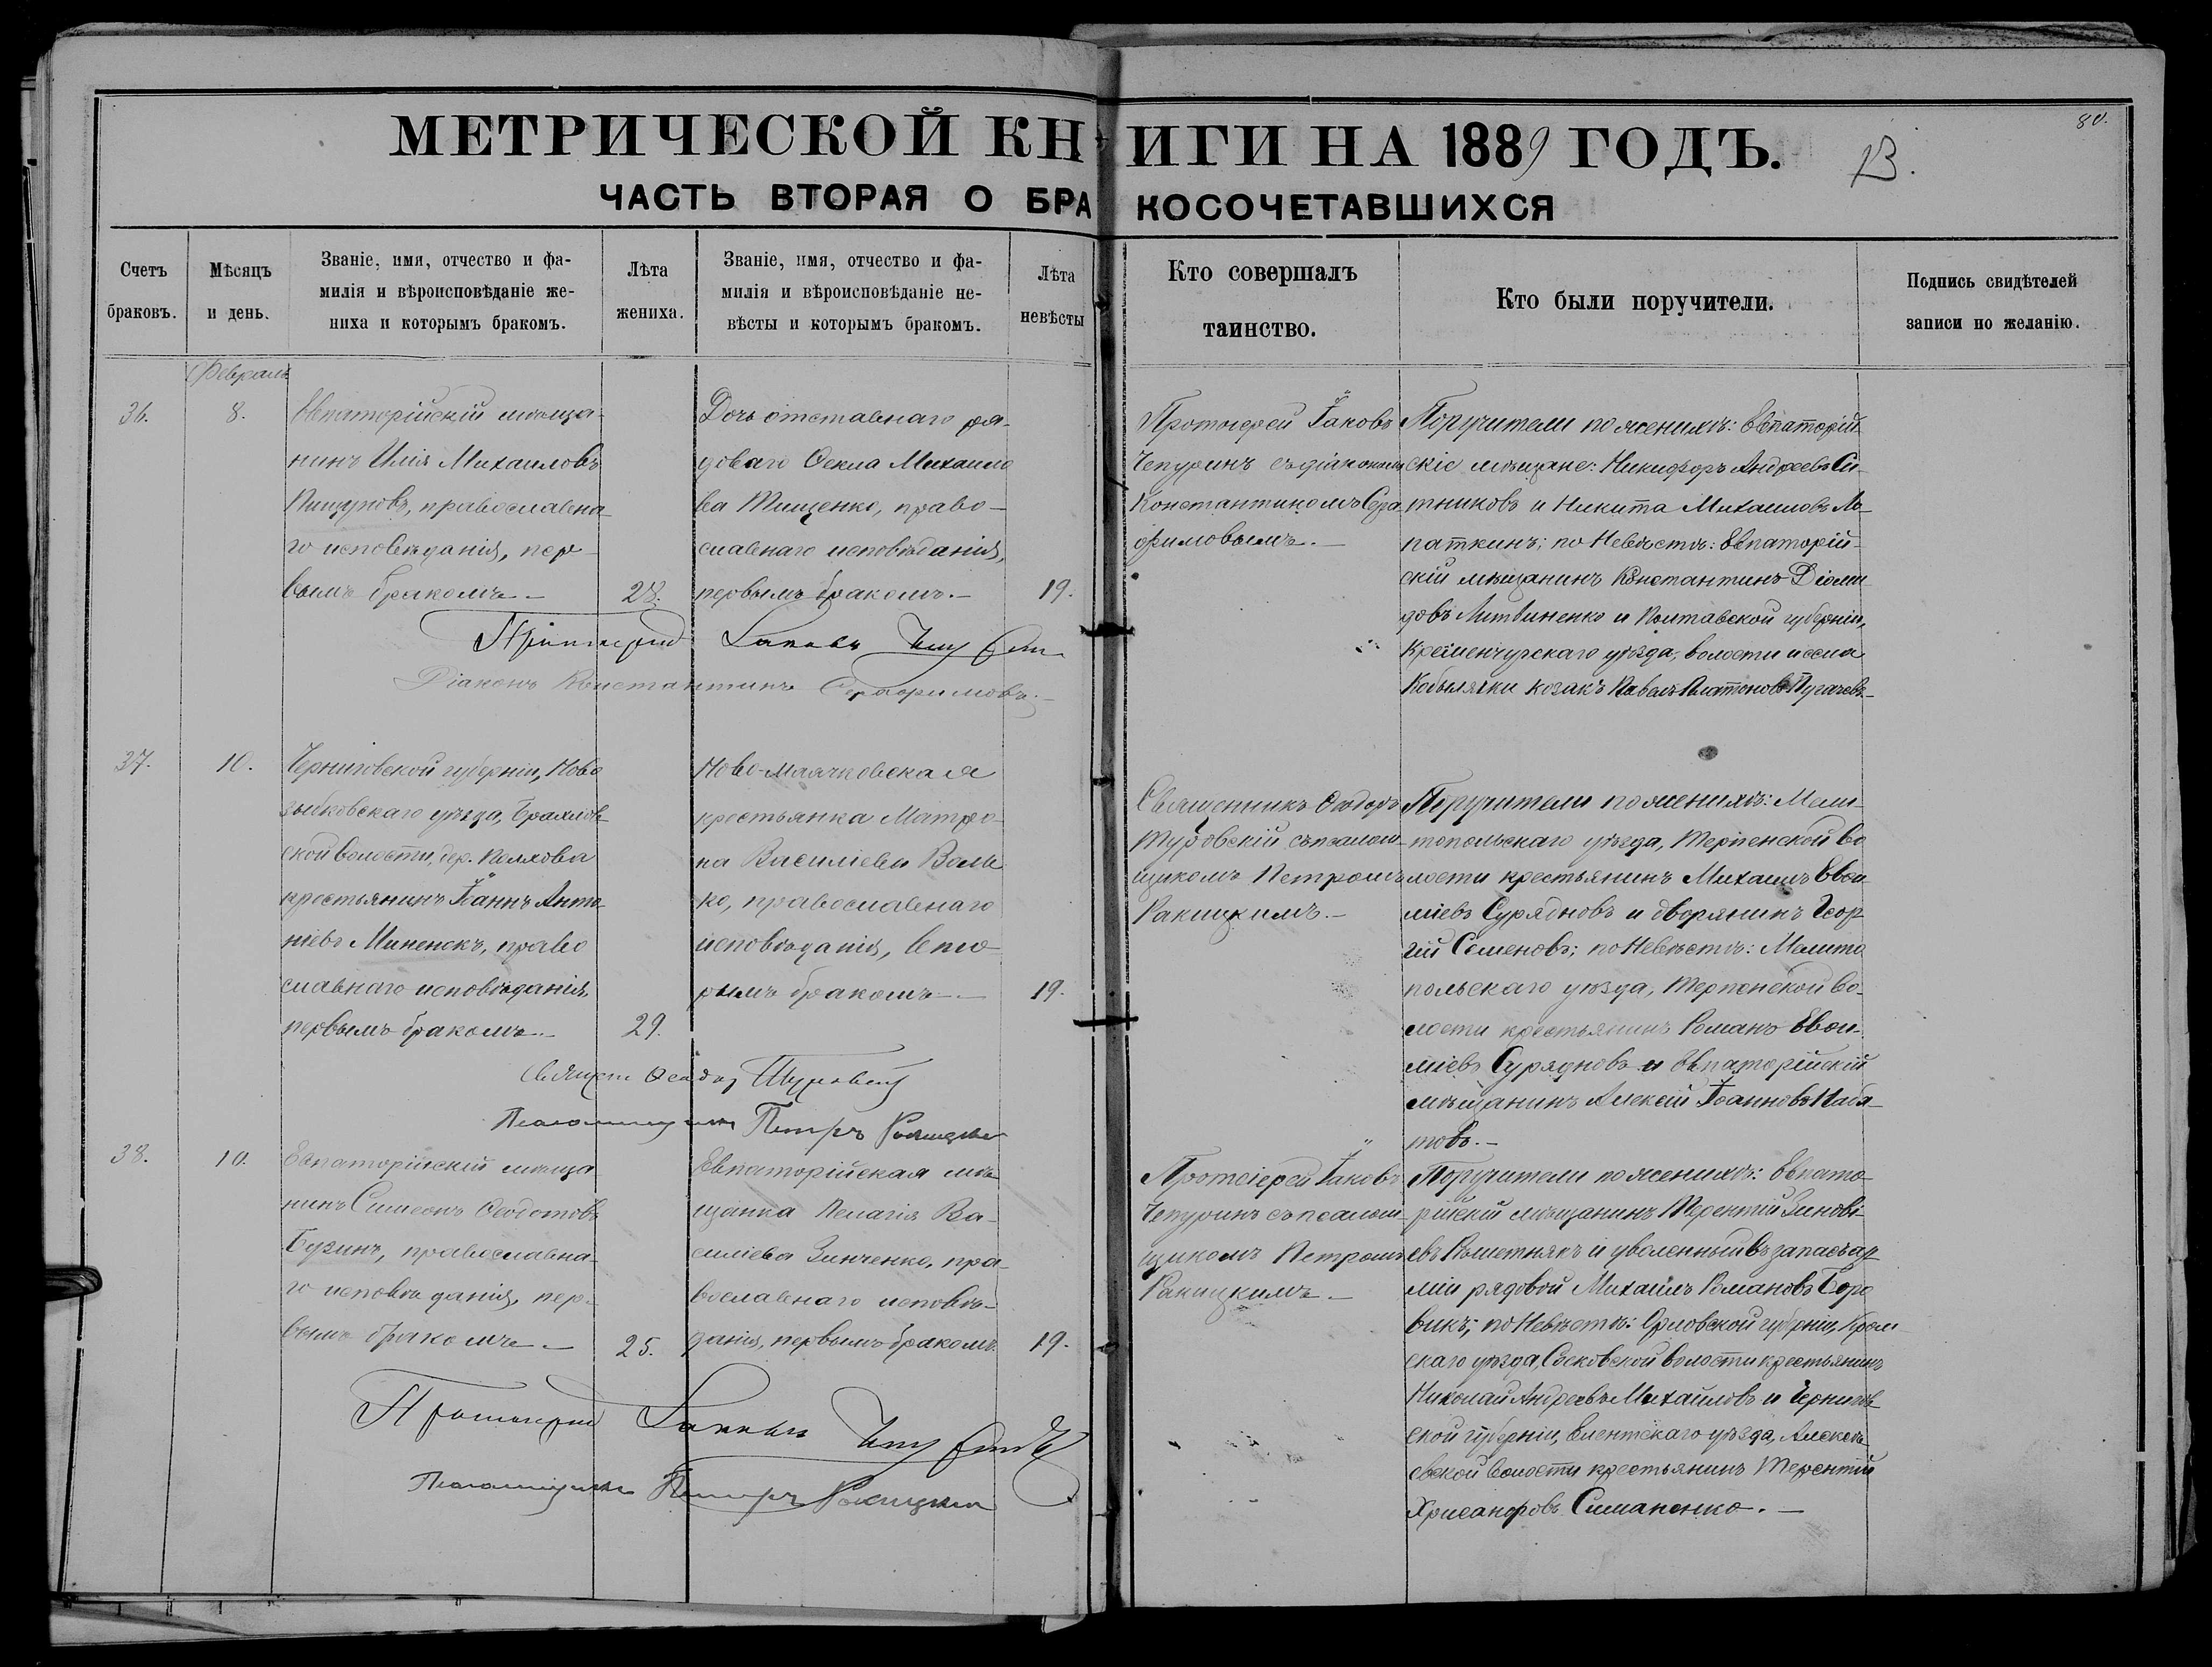 МЕТРИЧЕСКОЙ КНИГИ НА 1889 ГОДЪ.
80.
13.
ЧАСТЬ ВТОРАЯ О БРАКОСОЧЕТАВШИХСЯ
Счетъ
браковъ.
Мѣсяцъ
и день.
Званіе, имя, отчество и фа-
милія и вѣроисповѣданіе же-
ниха и которымъ бракомъ.
Лѣта
жениха.
Званіе, имя, отчество и фа-
милія и вѣроисповѣданіе не-
вѣсты и которымъ бракомъ.
Лѣта
невѣсты
Кто совершалъ
таинство.
Кто были поручители.
Подпись свидѣтелей
записи по желанію.
Февраль
36.
8.
Евпаторійскій мѣща-
нинъ Илія Михаиловъ
Пищуновъ, православна-
го исповѣданія, пер-
вымъ бракомъ.-
28.
Дочь отставнаго ря-
доваго Ѳекла Михаило
ва Тищенко, право-
славнаго исповѣданія,
первымъ бракомъ.-
19.
Протоіерей Іаковъ
Чепуринъ съ діакономъ
Константиномъ Сера-
фимовымъ.-
Поручители по женихѣ: Евпаторій-
скіе мѣщане: Никифоръ Андреевъ Си-
тниковъ и Никита Михаиловъ Ло-
паткинъ; по Невѣстѣ: Евпаторій-
скій мѣщанинъ Константинъ Діоми-
довъ Литвиненко и Полтавской губерніи,
Кременчугскаго уѣзда, волости и села
Кобылячки козакъ Павелъ Платоновъ Пугачевъ.-
Протоіерей Іаковъ Чепуринъ
Діаконъ Константинъ Серафимовъ.-
37.
10.
Черниговской губерніи, Ново
зыбковскаго уѣзда, Брахлов-
ской волости, дер.
крестьянинъ Іоаннъ Анто-
ніевъ Миненокъ, право
славнаго исповѣданія,
первымъ бракомъ.-
29.
Ново-Маячковская
крестьянка Матро-
на Василіева
ко, православнаго
исповѣданія, вто-
рымъ бракомъ.-
19.
Священникъ Ѳеодоръ
съ псалом-
щикомъ Петромъ
Ракицкимъ.-
Поручители по женихѣ: Мели-
топольскаго уѣзда, Терпенской во
лости крестьянинъ Михаилъ Евѳи-
міевъ Сурядновъ и дворянинъ Геор
гій Семеновъ; по Невѣстѣ: Мелито
польскаго уѣзда, Терпенской во-
лости крестьянинъ Романъ Евѳи-
міевъ Сурядновъ и Евпаторійскій
мѣщанинъ Алексій Іоанновъ Набо-
товъ.-
Священ Ѳеодор
Псаломщикъ Петръ Ракицкій
38.
10.
Евпаторійскій мѣща
нинъ Симеонъ Ѳедотовъ
православна-
го исповѣданія, пер-
вымъ бракомъ.-
25.
Евпаторійская мѣ
щанка Пелагія Ва-
силіева Зинченко, пра-
вославнаго исповѣ-
данія, первымъ бракомъ.
19.
Протоіерей Іаковъ
Чепуринъ съ псалом-
щикомъ Петромъ
Ракицкимъ.-
Поручители по женихѣ: Евпато-
рійскій мѣщанинъ Терентій Зинові-
евъ Решетнякъ и уволенный въ запасъ ар
міи рядовой Михаилъ Романовъ Боро
викъ; по Невѣстѣ: Орловской губерніи, Кром-
скаго уѣзда, Сосковской волости крестьянинъ
Николай Андреевъ Михайловъ и Чернигов-
ской губерніи, уѣзда, Алексѣ-
евской волости крестьянинъ Терентій
Хрисанфовъ Симаненко.-
Протоіерей Іаковъ Чепуринъ
Псаломщикъ Петръ Ракицкій